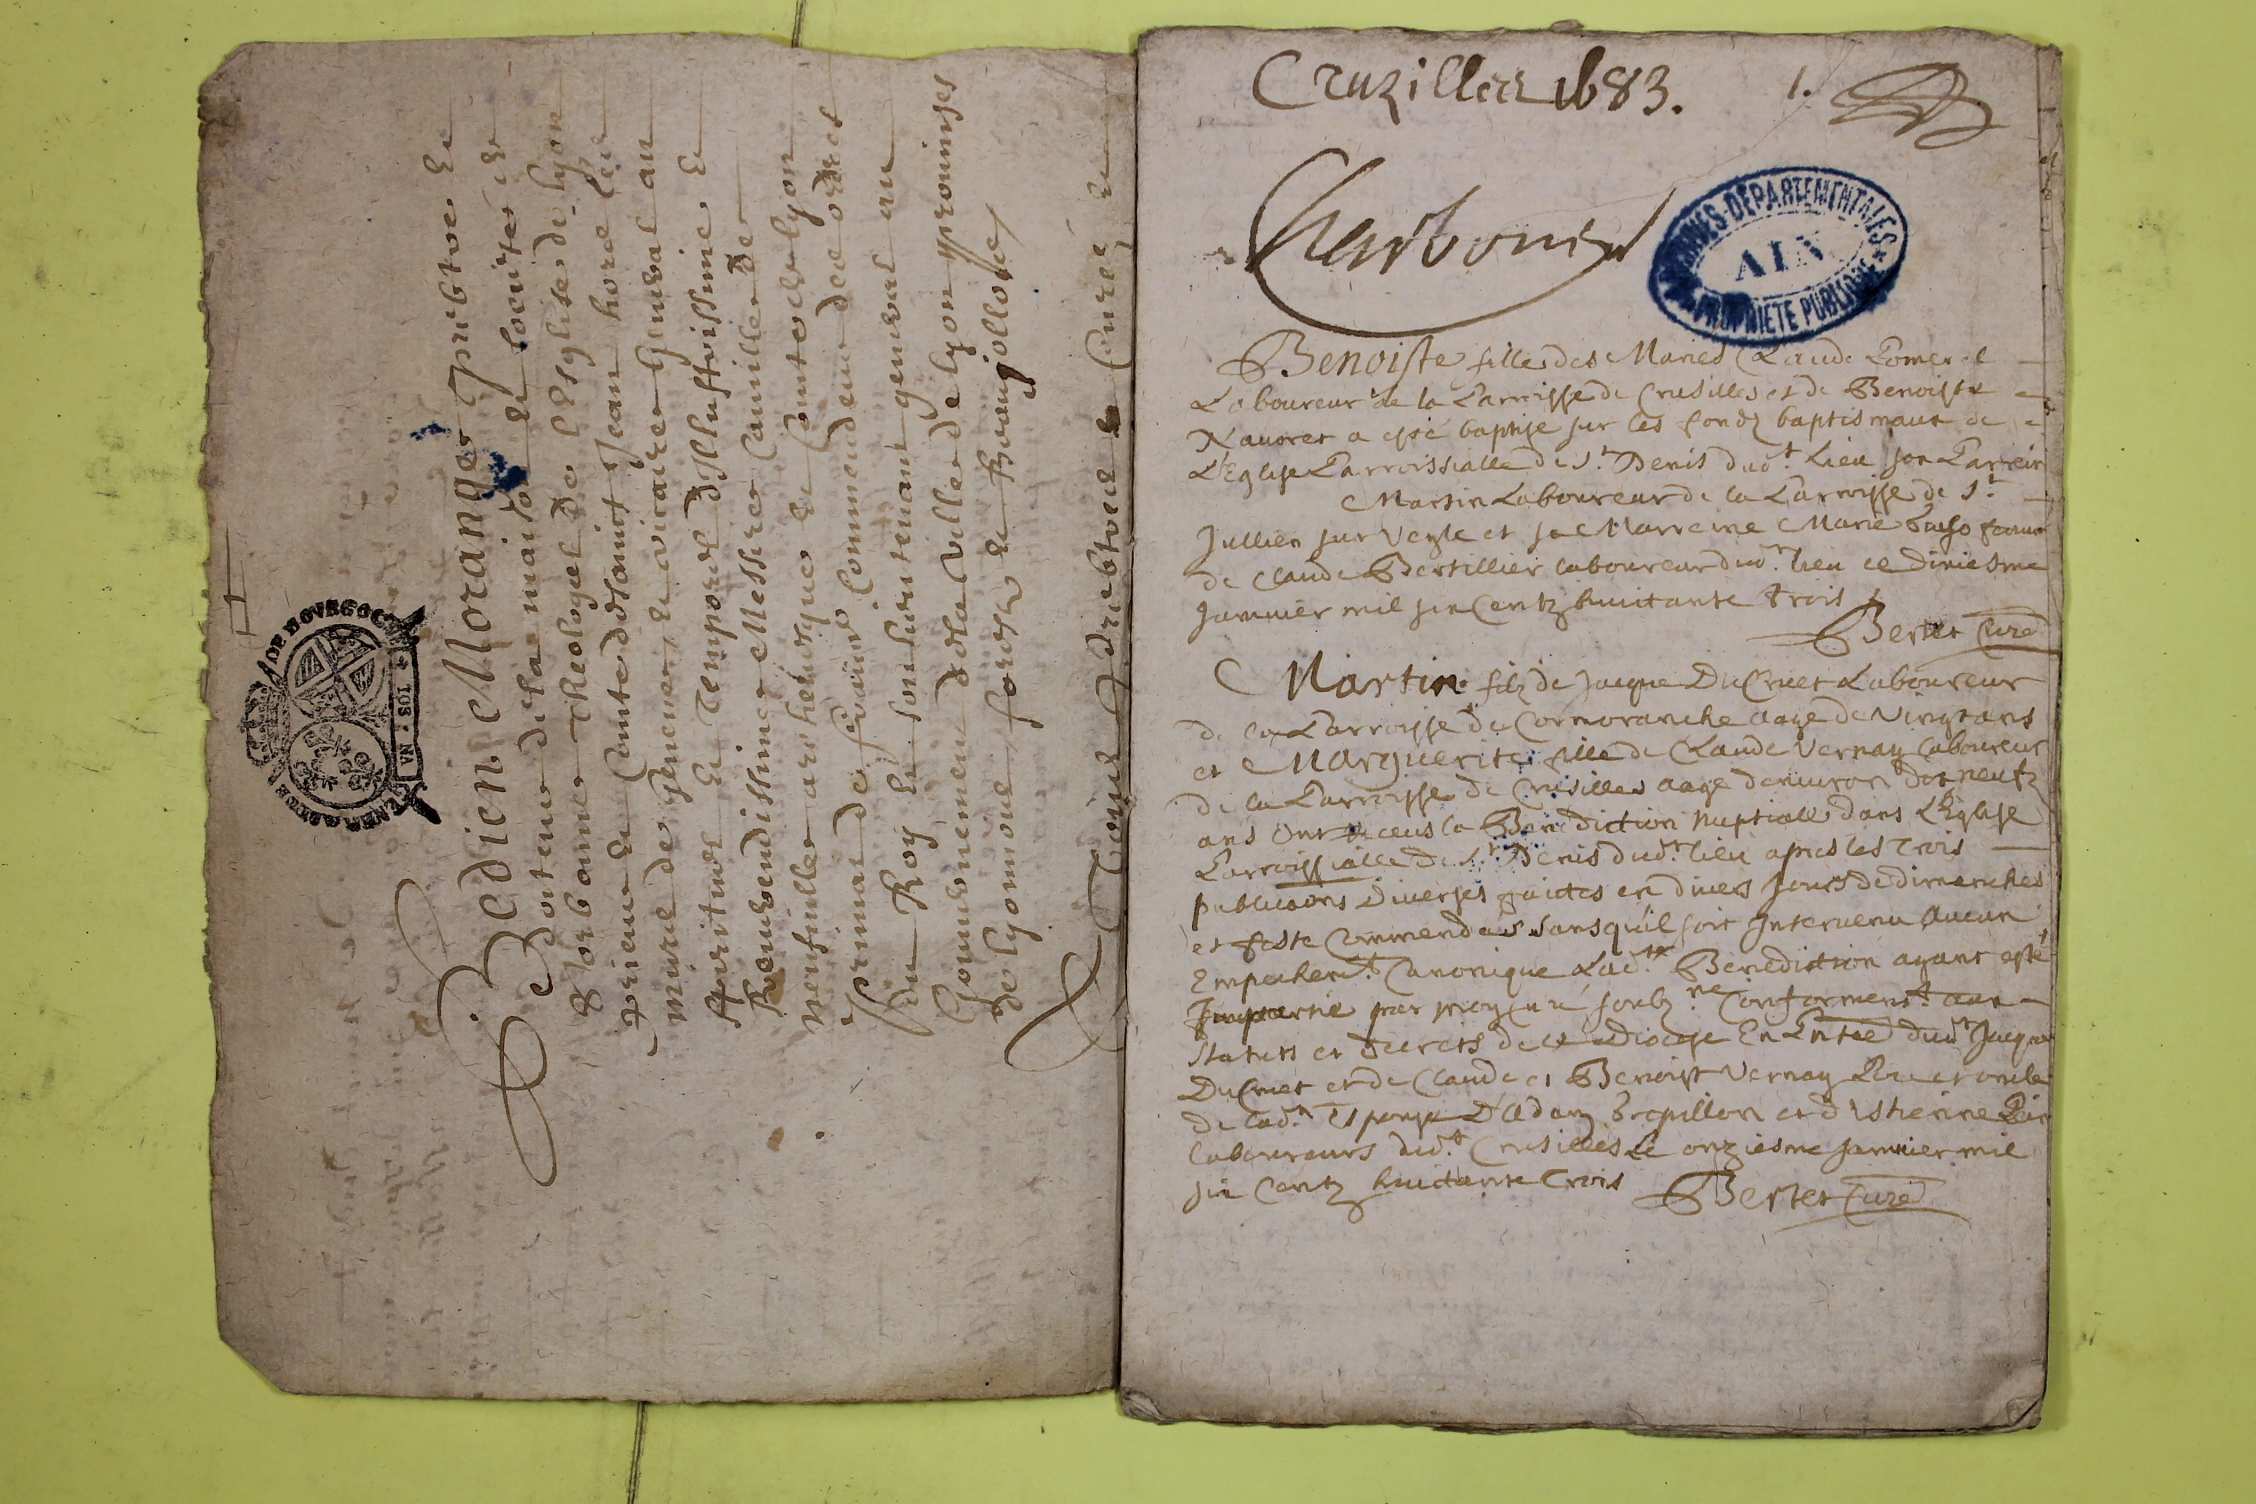 Bedien Morange prebtre et
docteur de la maison et societés de
Sorbonne Theologal de l'Esglise de lyon
prieur et Comte de St Jean hors les
murs de Geneve, et vicaire general au
spirituel et temporel d'Illustrissime et
Reverendissime Messire Camille de
neufville archevesque et Comte de lyon
primat de France Commendeur des ordres
du Roy et son lieutenant general au
Gouvernement de la Ville de lyon provinces
de lyonnois forestz et Beaujollois
A Tous prebtres Curés et
DE BOVRGOGNE
GENERALITE
Cruzilles 1683. 1.
Charbonnet
ARCHIVES DÉPARTEMENTALES
AIN
PROPRIÉTÉ PUBLIQUE
Benoiste fille des Mariés Claude Pomerel
Laboureur de la Parroisse de Crusilles et de Benoiste
Navoret a esté baptisé sur les fondz baptismaux de
L'Eglise Parroissialle de St Denis dudt Lieu son Parrein
Martin Laboureur de la Parroisse de St
Jullien sur Veyle et sa Marreine Marie femme
de Claude Bertillier laboureur dudt lieu ce dixiesme
Janvier mil six Centz huictante trois
Bertet Curé
Martin filz de Jacque DuCruet Laboureur
de la Parroisse de Cormoranche aagé de Vingt ans
et Marguerite fille de Claude Vernay laboureur
de la Parroisse de Crusilles aagé denviron dixneufz
ans Ont receus la Benediction Nuptialle dans L'Eglise
Parroissialle de St Denis dudt lieu apres les Trois
publications diverses faictes en divers Jours de dimanches
et feste Commendés sans quil soit Intervenu Aucun
Empechemt Canonique Ladte Benediction ayant esté
Impartie par moy Curé soubzne Conformemt aux
statuts et decrets de ce Diocese En Pntee dudt Jacque
DuCruet et de Claude et Benoist Vernay Pere et oncle
de ladte Espouse D'Adam Brepillon et d'Estienne
laboureurs dudt Crusilles Le onziesme Janvier mil
six Centz huictante Trois Bertet Curé